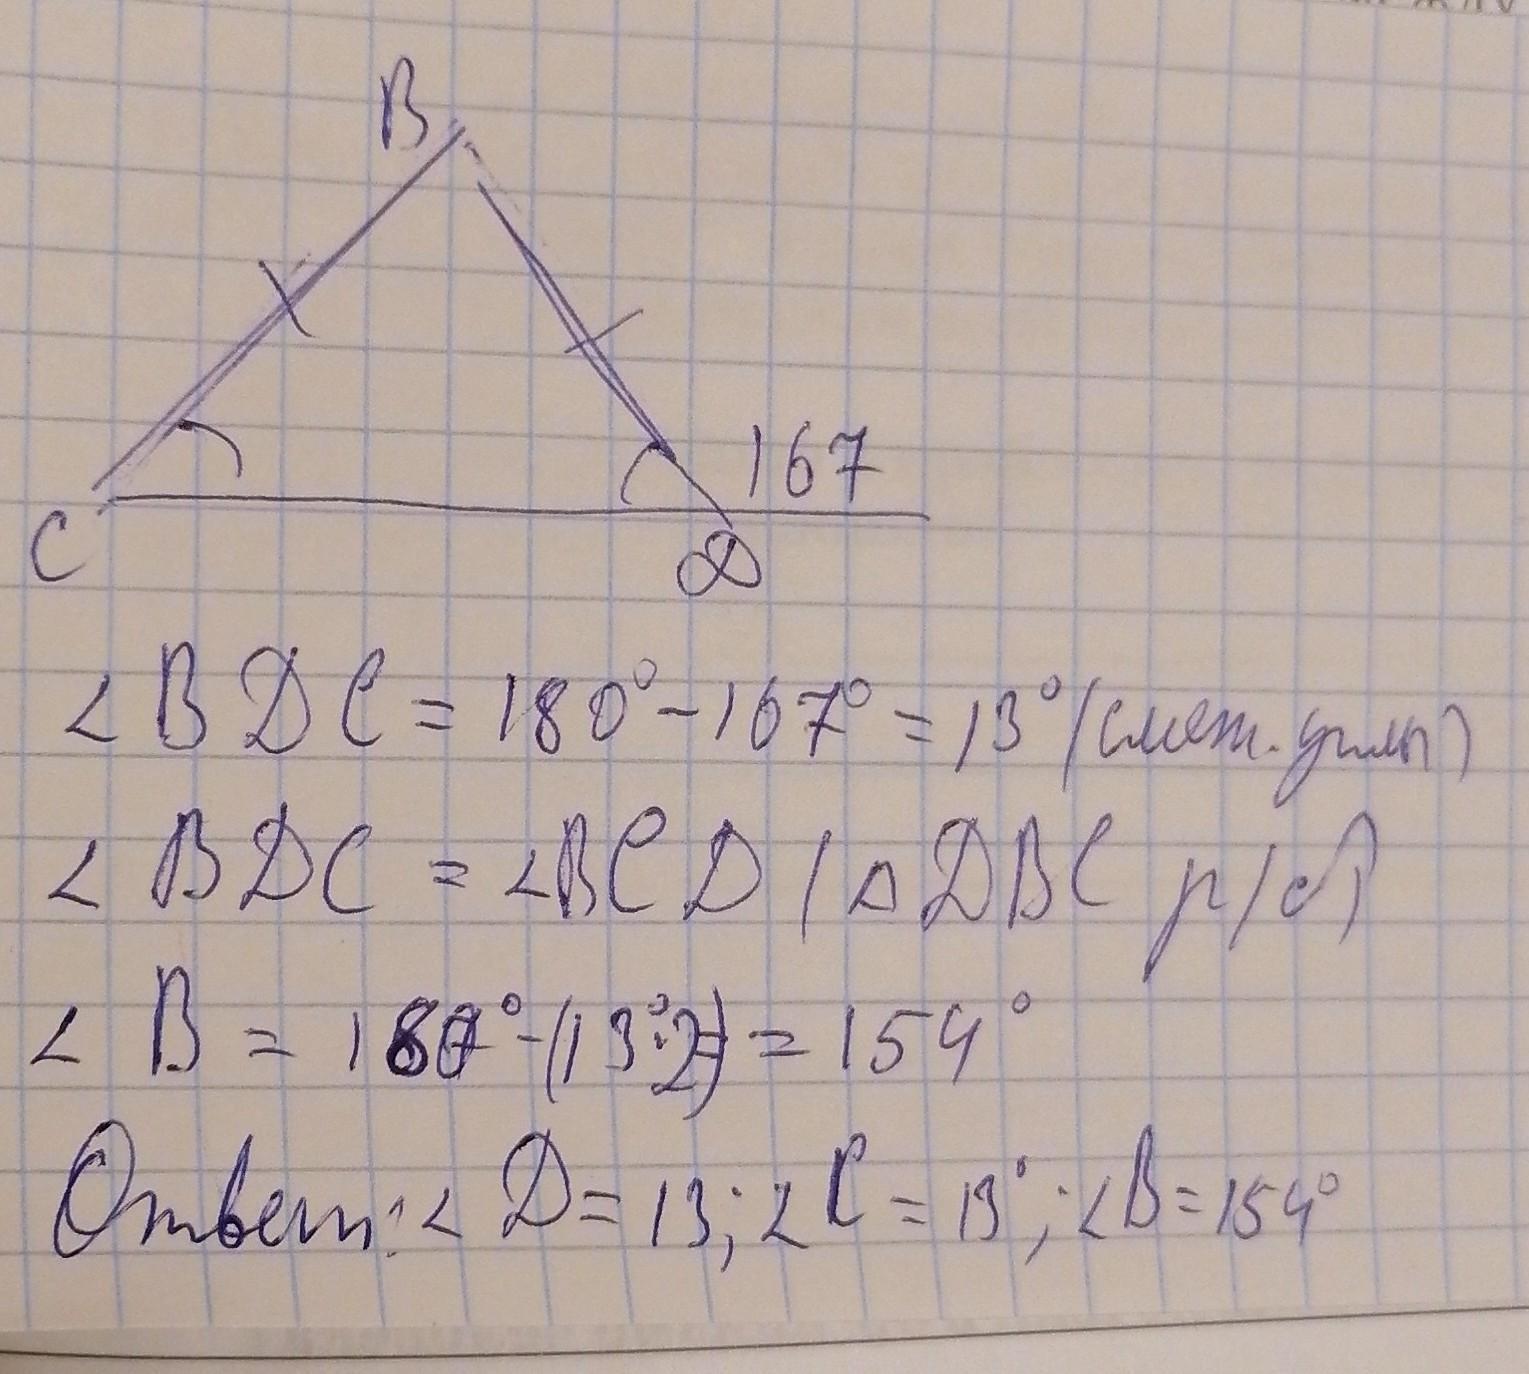 B
167
C
D
∠BDC = 180° - 167° = 13° (смеж. углы)
∠BDC = ∠BCD (△DBC р/б)
∠B = 180° - (13°·2) = 154°
Ответ: ∠D = 13; ∠C = 13°; ∠B = 154°